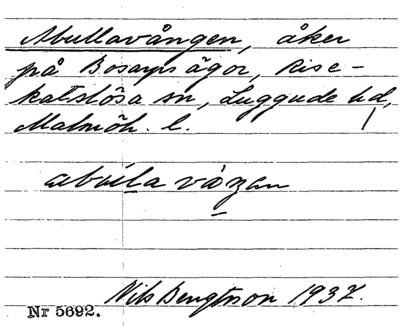 Abullavången, åker
på Bosarps ägor, Rise-
katslösa sn, Luggude hd,
Malmöh. l.
abúlla vàŋan
Nils Bengtsson 1937.
Nr 5692.